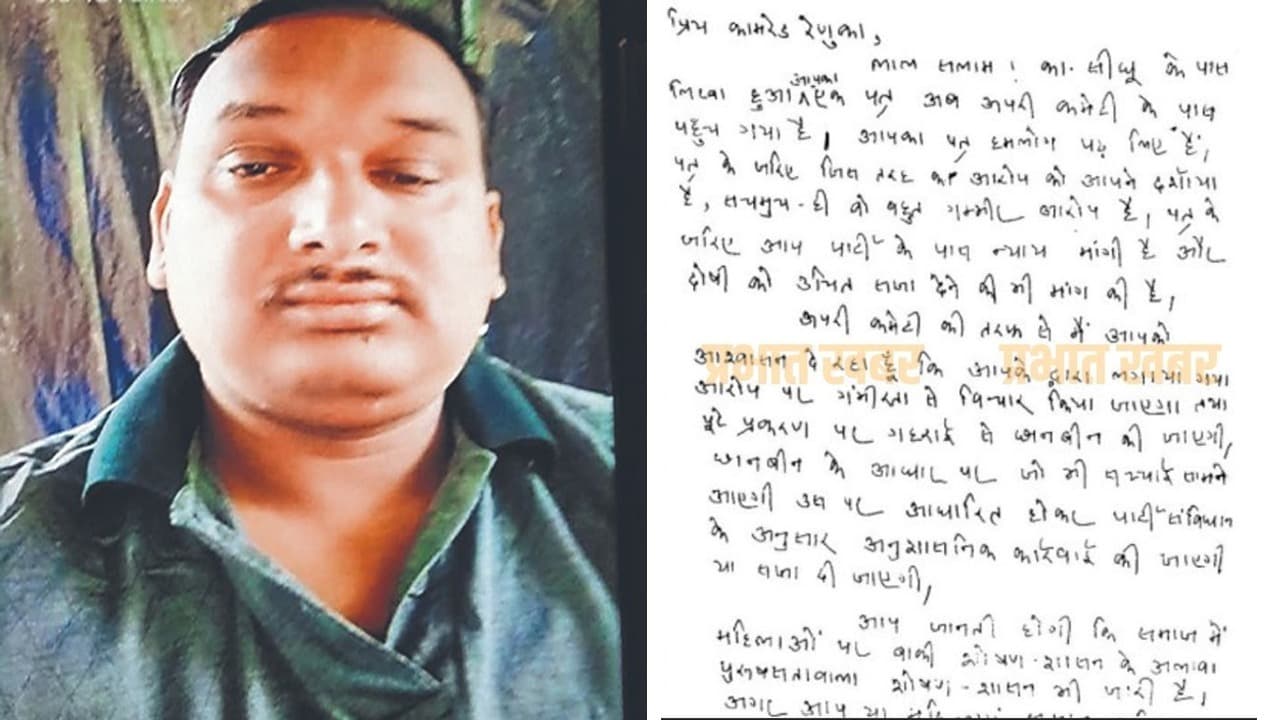 प्रिय कामरेड रेणुका,
लाल सलाम! का. सीधू के पास
लिखा हुआ आपका एक पत्र अब अपनी कमेटी के पास
पहुँच गया है, आपका पत्र हमलोग पढ़ लिए हैं,
पत्र के जरिए जिस तरह का आरोप को आपने दर्शाया
है, सचमुच-ही वो बहुत गम्भीर आरोप है, पत्र के
जरिए आप पार्टी के पास न्याय मांगी है और
दोषी को उचित सजा देने की भी मांग की है,
अपनी कमेटी की तरफ से मैं आपको
आश्वासन दे रहा हूँ कि आपके द्वारा लगाया गया
आरोप पर गंभीरता से विचार किया जाएगा तथा
पूरे प्रकरण पर गहराई से छानबीन की जाएगी,
छानबीन के आधार पर जो भी सच्चाई सामने
आएगी उस पर आधारित होकर पार्टी संविधान
के अनुसार अनुशासनिक कार्रवाई की जाएगी
या सजा दी जाएगी,
आप जानती होगी कि समाज में
महिलाओं पर बाकी शोषण-शासन के अलावा
पुरुषसत्तावाला शोषण-शासन भी जारी है,
अगर आप या
प्रभात खबर प्रभात खबर